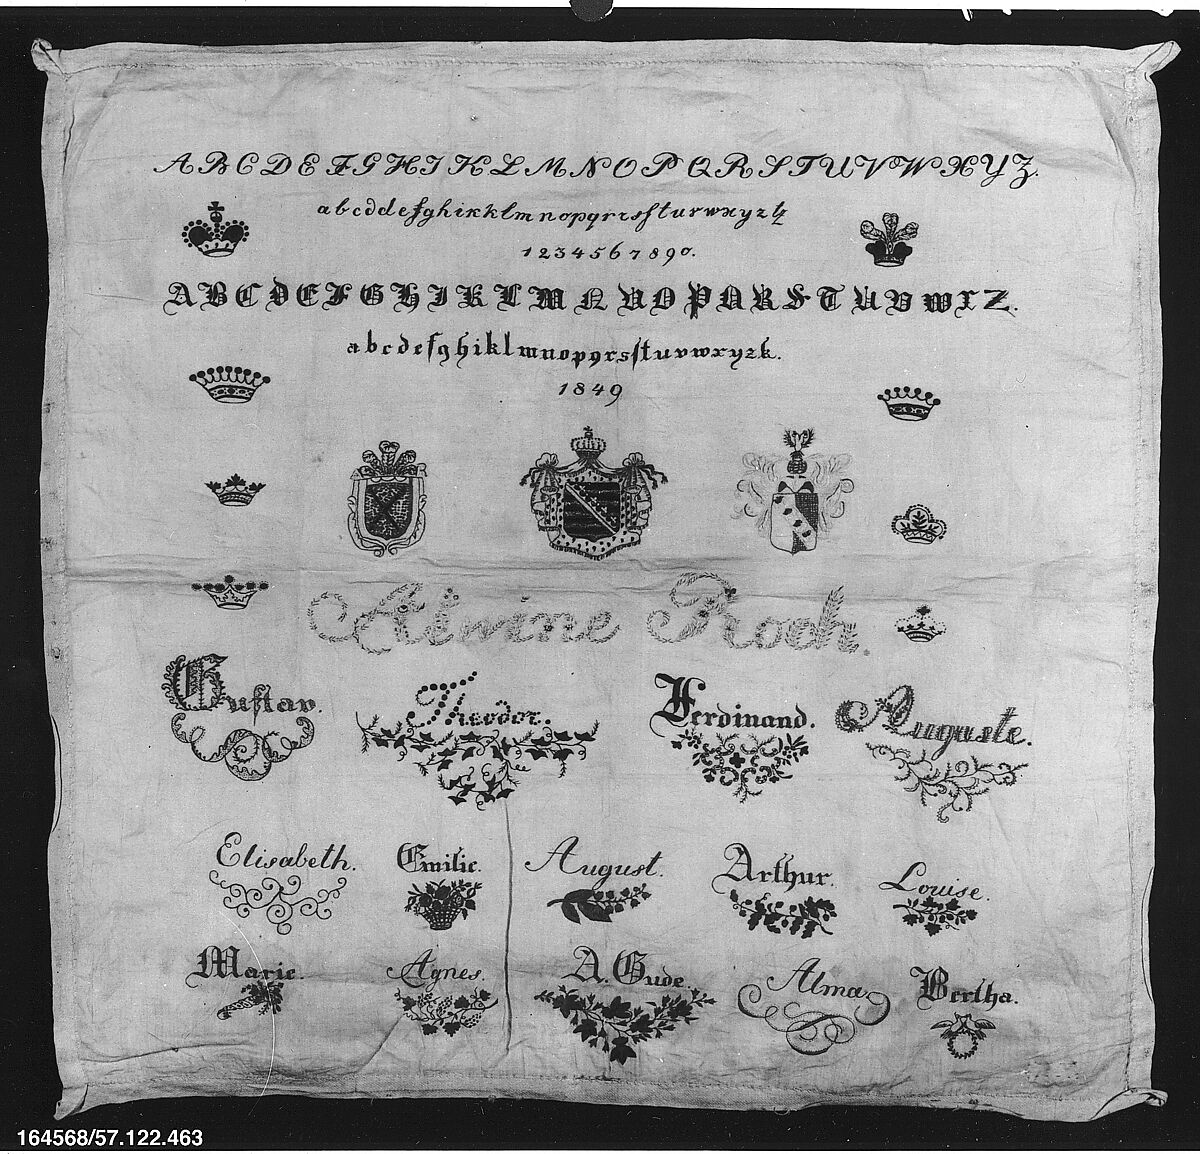 A B C D E F G H I K L M N O P Q R S T U V W X Y Z.
a b c d d e f g h i k k l m n o p q r r s ſ t u v w x y z tz
1 2 3 4 5 6 7 8 9 0.
A B C D E F G H I K L M N O P Q R S T U V W X Z.
a b c d e f g h i k l m n o p q r s ſ t u v w x y z k.
1849
Alwine Koch.
Gustav. Theodor. Ferdinand. Auguste.
Elisabeth. Emilie. August. Arthur. Louise.
Marie. Agnes. A. Gude Alma. Bertha.
164568/57.122.463